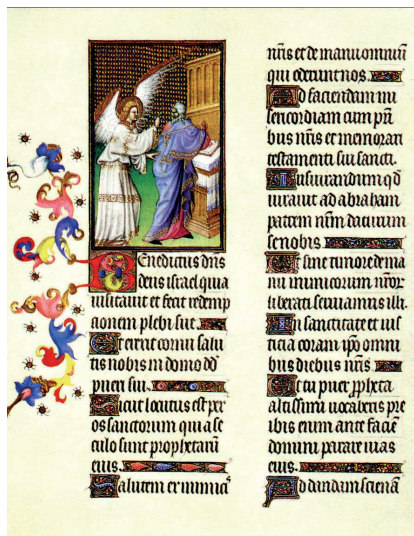 Enedictus dns
deus israel quia
uisitauit et fecit redemp
tionem plebi sue.
Et erexit cornu salu
tis nobis in domo dd
pueri sui.
Sicut locutus est per
os sanctorum qui a se
culo sunt prophetaru
eius.
Salutem ex inimicis
nris et de manu omniu
qui oderunt nos.
Ad faciendam mi
sericordiam cum pri
bus nris et memorari
testamenti sui sancti.
Iusiurandum qd
iurauit ad abraham
patrem nrm daturum
se nobis
Ut sine timore de ma
nu inimicorum nror
liberati seruiamus illi.
In sanctitate et ius
ticia coram ipo omni
bus diebus nris
Et tu puer ppheta
altissimi uocaberis pre
ibis enim ante facie
domini parare uias
eius.
Ad dandam sciena